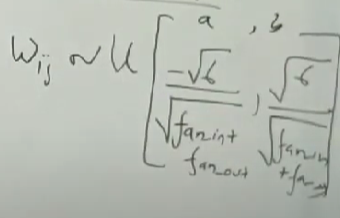 a , b
W_ij ~ U [ -√6 / √fan_in + fan_out , √6 / √fan_in + fan_out ]